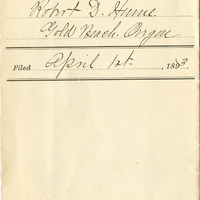 Robert D. Hume.
Gold Beach. Oregon
Filed April 1st. , 1893.